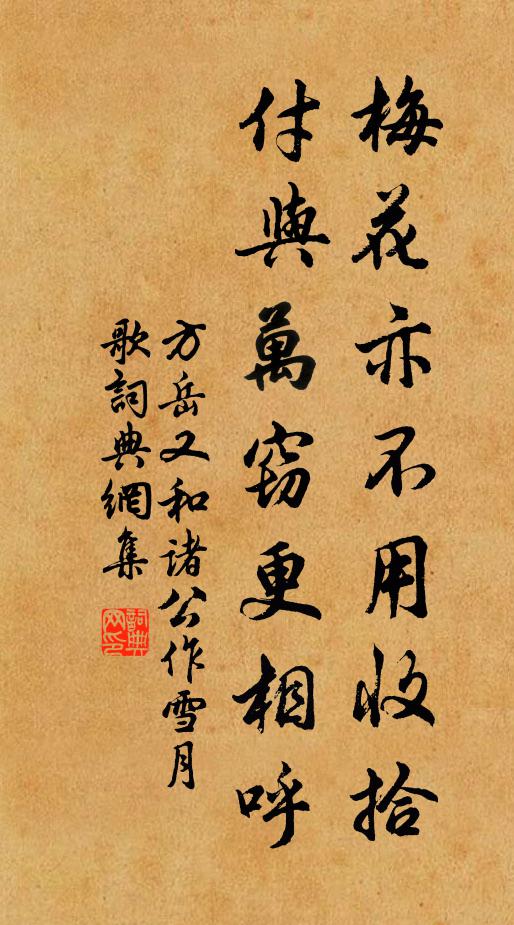 梅花亦不用收拾
付與萬竊更相呼
方岳又和諸公作雪月
歌詞典網集
詞典
网印